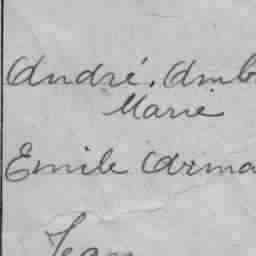 André. Amb
Marie
Emile Arma
Jean